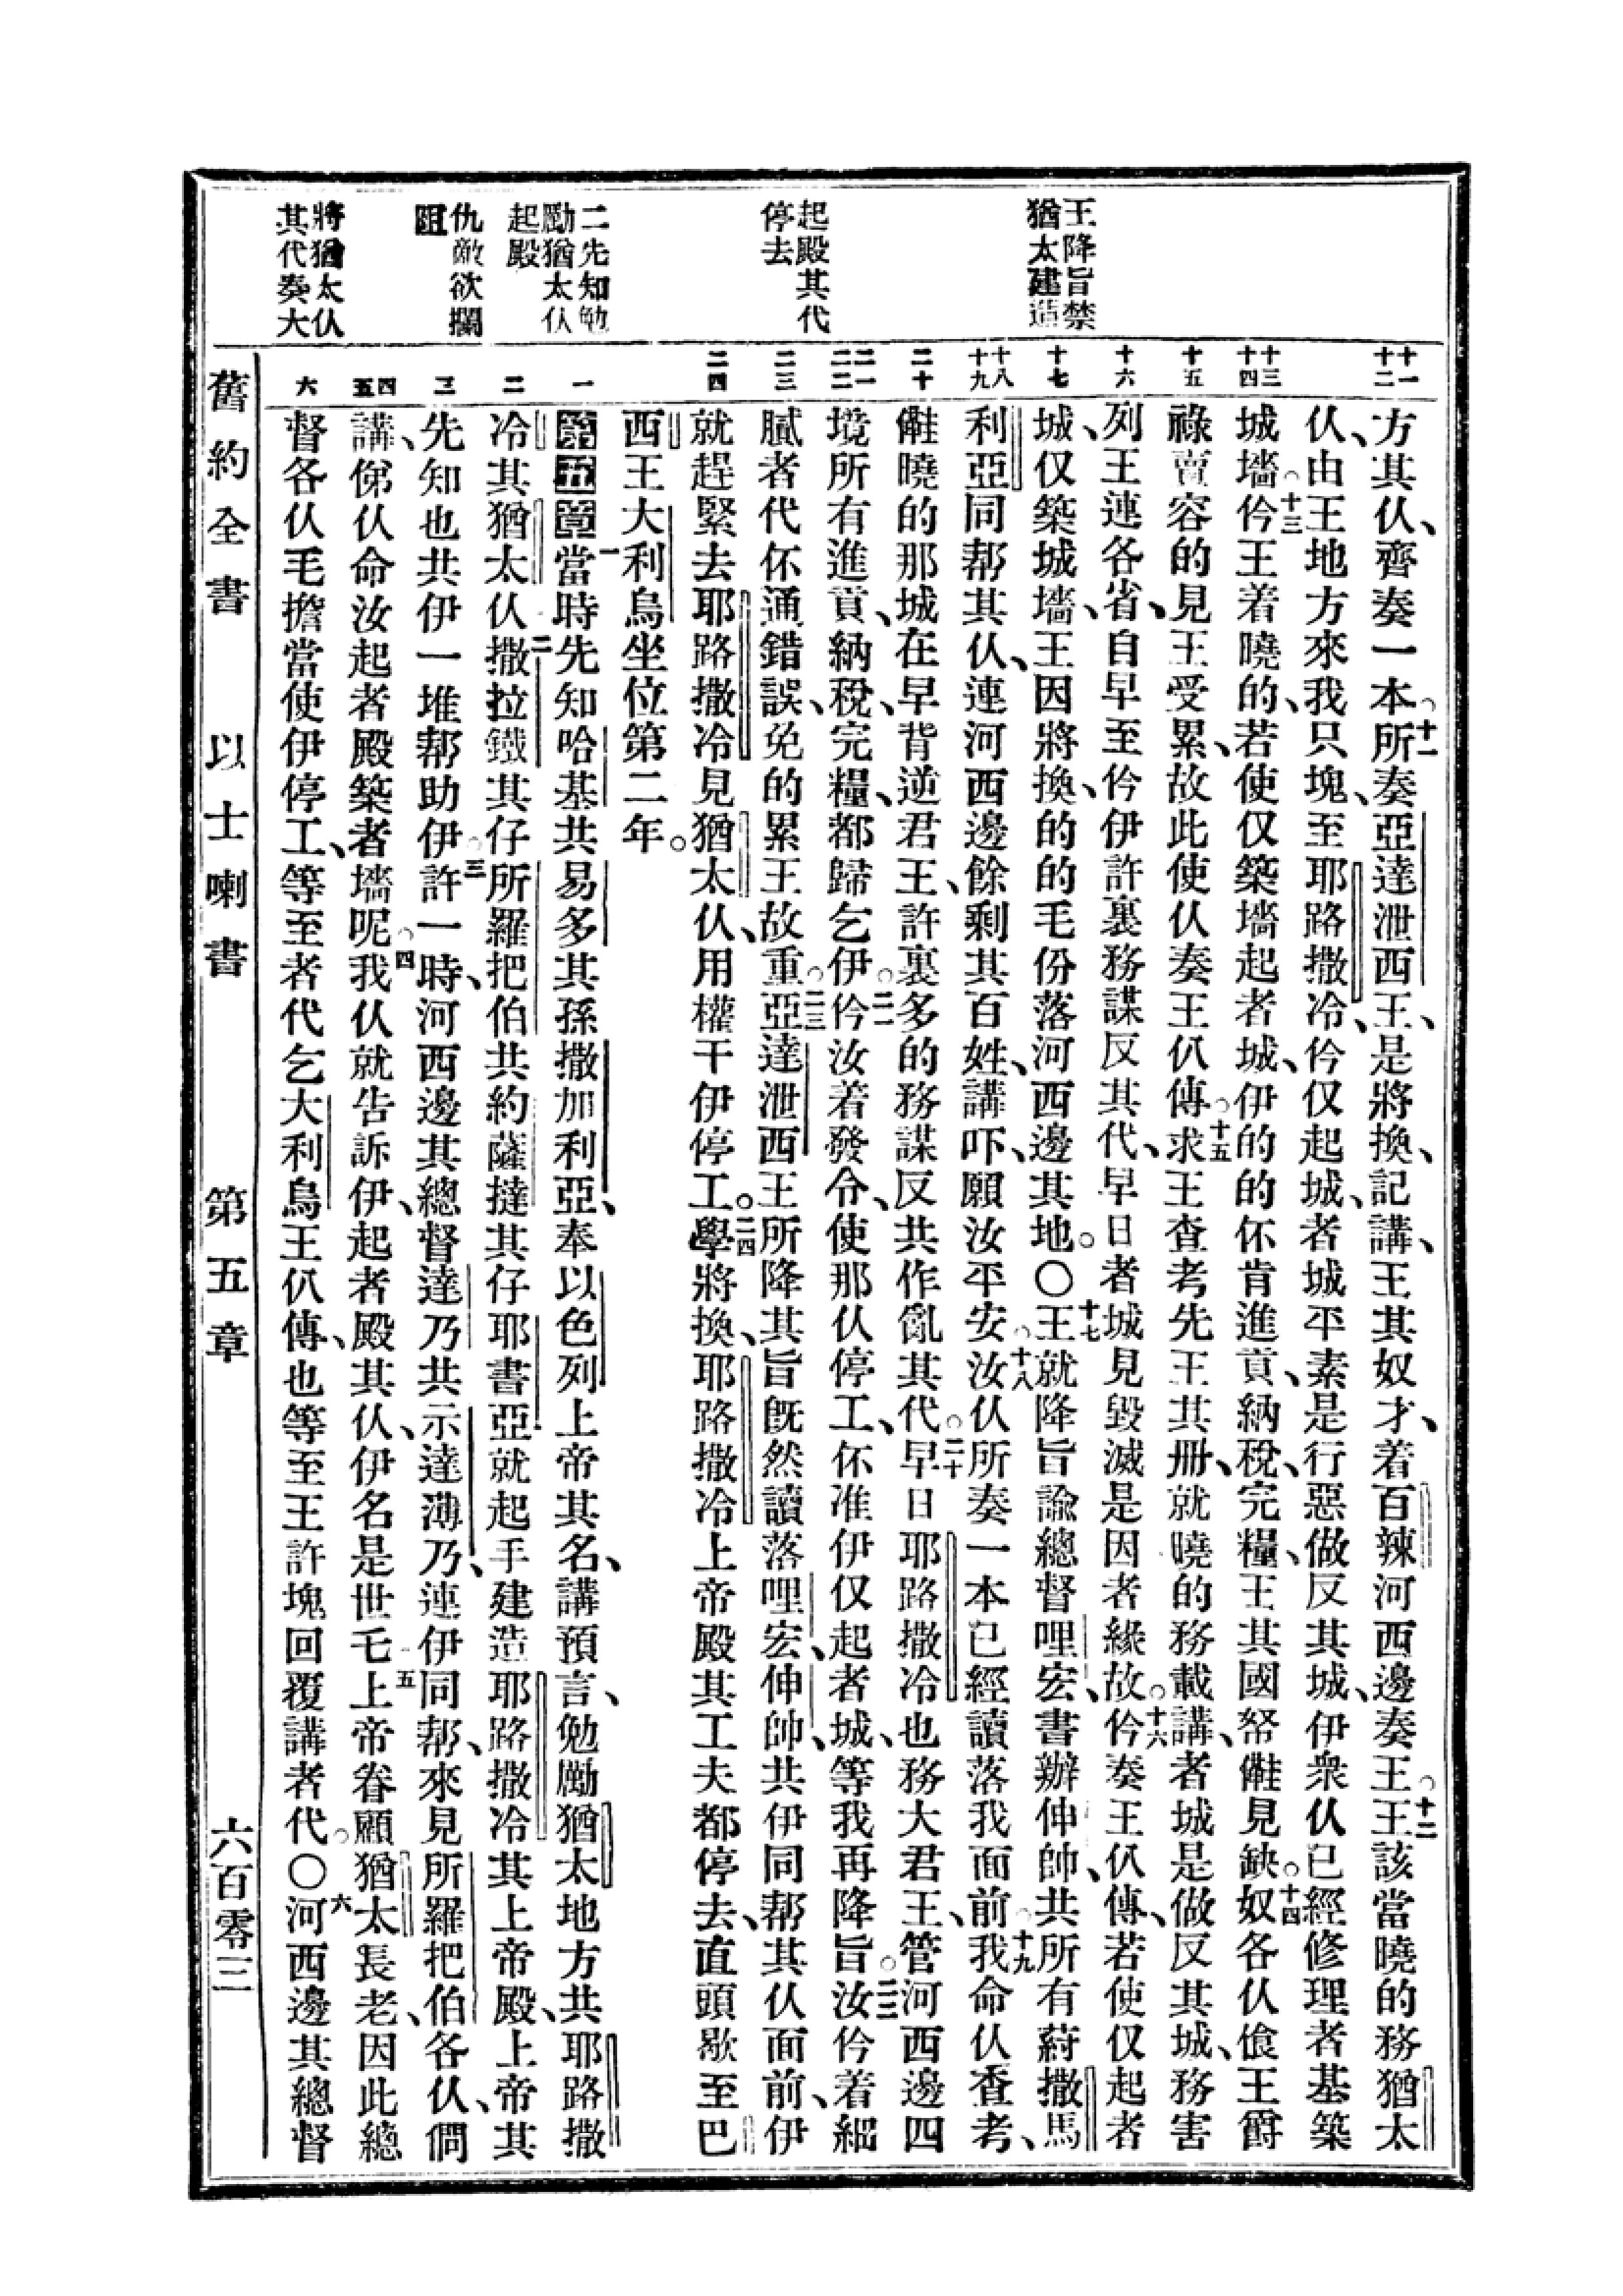 王降旨禁
猶太建造
起殿其代
停去
二先知勉
勵猶太仈
起殿
仇敵欲攔
阻
將猶太仈
其代奏大
十一
十二
十三
十四
十五
十六
十七
十八
十九
二十
二一
二二
二三
二四
一
二
三
四
五
六
方其仈、齊奏一本。十一所奏亞達泄西王、是將換、記講、王其奴才、着百辣河西邊奏王。十二王該當曉的務猶太
仈、由王地方來我只塊、至耶路撒冷、仱仅起城、者城平素是行惡做反其城、伊衆仈已經修理者基築
城墻。十三仱王着曉的、若使仅築墻起者城、伊的的伓肯進貢、納稅、完糧、王其國帑僫見缺。十四奴各仈飡王爵
祿賣容的見王受累、故此使仈奏王仅傳。十五求王查考先王其册、就曉的務載講、者城是做反其城、務害
列王連各省、自早至仱伊許裏務謀反其代、早日者城見毀滅是因者緣故。十六仱奏王仅傳、若使仅起者
城、仅築城墻、王因將換、的的毛份落河西邊其地。〇十七王就降旨諭總督哩宏、書辦伸帥、共所有蒔撒馬
利亞同帮其仈、連河西邊餘剩其百姓、講吓、願汝平安。十八汝仈所奏一本已經讀落我面前。十九我命仈查考、
僫曉的那城在早背逆君王、許裏多的務謀反共作亂其代。二十早日耶路撒冷也務大君王、管河西邊四
境所有進貢、納稅、完糧、都歸乞伊。二一仱汝着發令、使那仈停工、伓准伊仅起者城、等我再降旨。二二汝仱着細
膩者代伓通錯誤、免的累王故重。二三亞達泄西王所降其旨旣然讀落哩宏、伸帥、共伊同帮其仈面前、伊
就趕緊去耶路撒冷見猶太仈、用權干伊停工。二四學將換、耶路撒冷上帝殿其工夫都停去、直頭歇至巴
西王大利烏坐位第二年。
第五章一當時先知哈基共易多其孫撒加利亞、奉以色列上帝其名、講預言、勉勵猶太地方共耶路撒
冷其猶太仈二撒拉鐵其仔所羅把伯共約薩撻其仔耶書亞就起手建造耶路撒冷其上帝殿、上帝其
先知也共伊一堆帮助伊。三許一時、河西邊其總督達乃共示達薄乃、連伊同帮、來見所羅把伯各仈、僩
講、俤仈命汝起者殿築者墻呢。四我仈就告訴伊、起者殿其仈、伊名是世乇五上帝眷顧猶太長老、因此總
督各仈毛擔當使伊停工、等至者代乞大利烏王仅傳、也等至王許塊回覆講者代。〇六河西邊其總督
舊約全書 以士喇書 第五章 六百零三